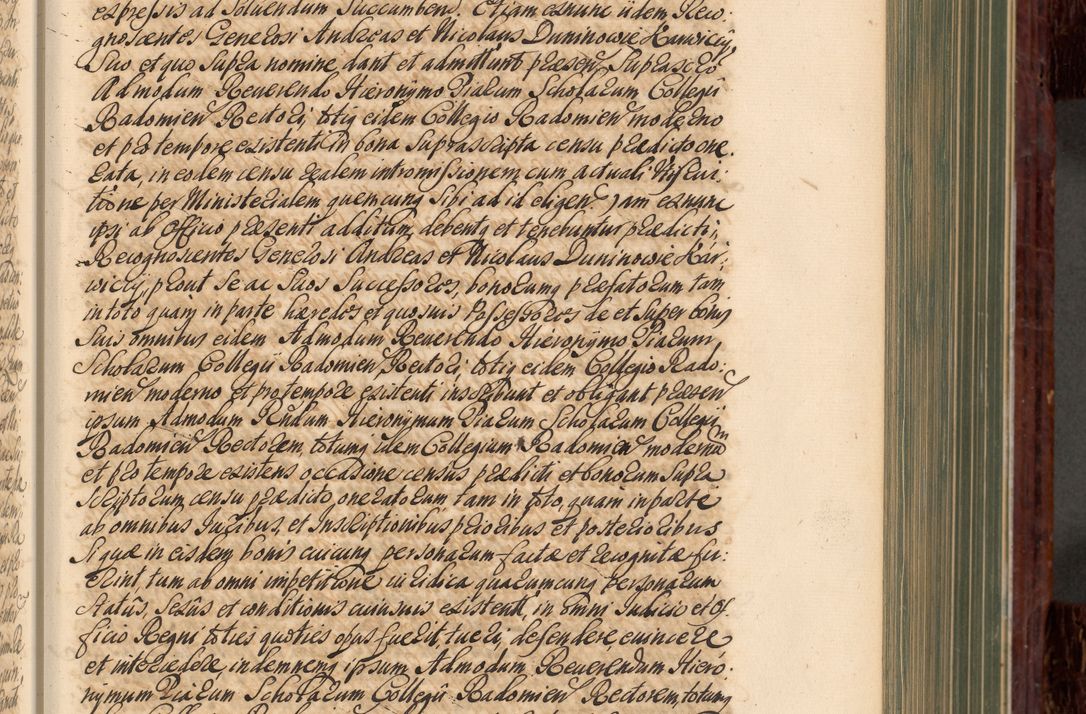 expressis ad Solvendum Succumbent. Etiam exnunc iidem Reco-
gnoscentes Generosi Andreas et Nicolaus Duninowie Karwiccy,
Suo et quo Supra nomine dant et admittunt præsen Suprascrō
Admodum Reverendo Hieronymo Piarum Scholarum Collegii
Radomien Rectori totiq eidem Collegio Radomien moderno
et pro tempore existenti in bona suprascripta censu prædicto one-
rata, in eodem censu realem intromissionem cum actuali
tione per Ministerialem quemcunq Sibi ad id eligen jam exnunc
ipsi ab Officio præsenti additum, debentq et tenebuntur prædicti,
Recognoscentes Generosi Andreas et Nicolaus Duninowie Kar-
wiccy, prout se ac Suos Successores, bonorumq præfatorum tam
in toto quam in parte hæredes et quosvis Possessores de et super bonis
Suis omnibus eidem Admodum Reverendo Hieronymo Piarum
Scholarum Collegii Radomien Rectori totiq eidem Collegio Rado-
mien moderno et pro tempore existenti inscribunt et obligant præsen
ipsum Admodum Rndum Hieronymum Piarum Scholarum Collegii
Radomien Rectorem totumq idem Collegium Radomien modernū
et pro tempore existens occasione census prædicti et bonorum supra
scriptorum censu prædicto oneratorum tam in toto, quam in parte
ab omnibus Juribus, et Inscriptionibus prioribus et posterioribus
Si quæ in eisdem bonis cuicunq personarum factæ et recognitæ fu-
erint tum ab omni impetitione iuridica quarumcunq personarum
Statûs, Sexûs et conditionis cuiusvis existent, in omni Judicio et Of-
ficio Regni toties quoties opus fuerit tueri, defendere, evincere
et intercedere, indemnemq ipsum Admodum Reverendum Hiero-
nymum Piarum Scholarum Collegii Radomien Rectorem, totumq